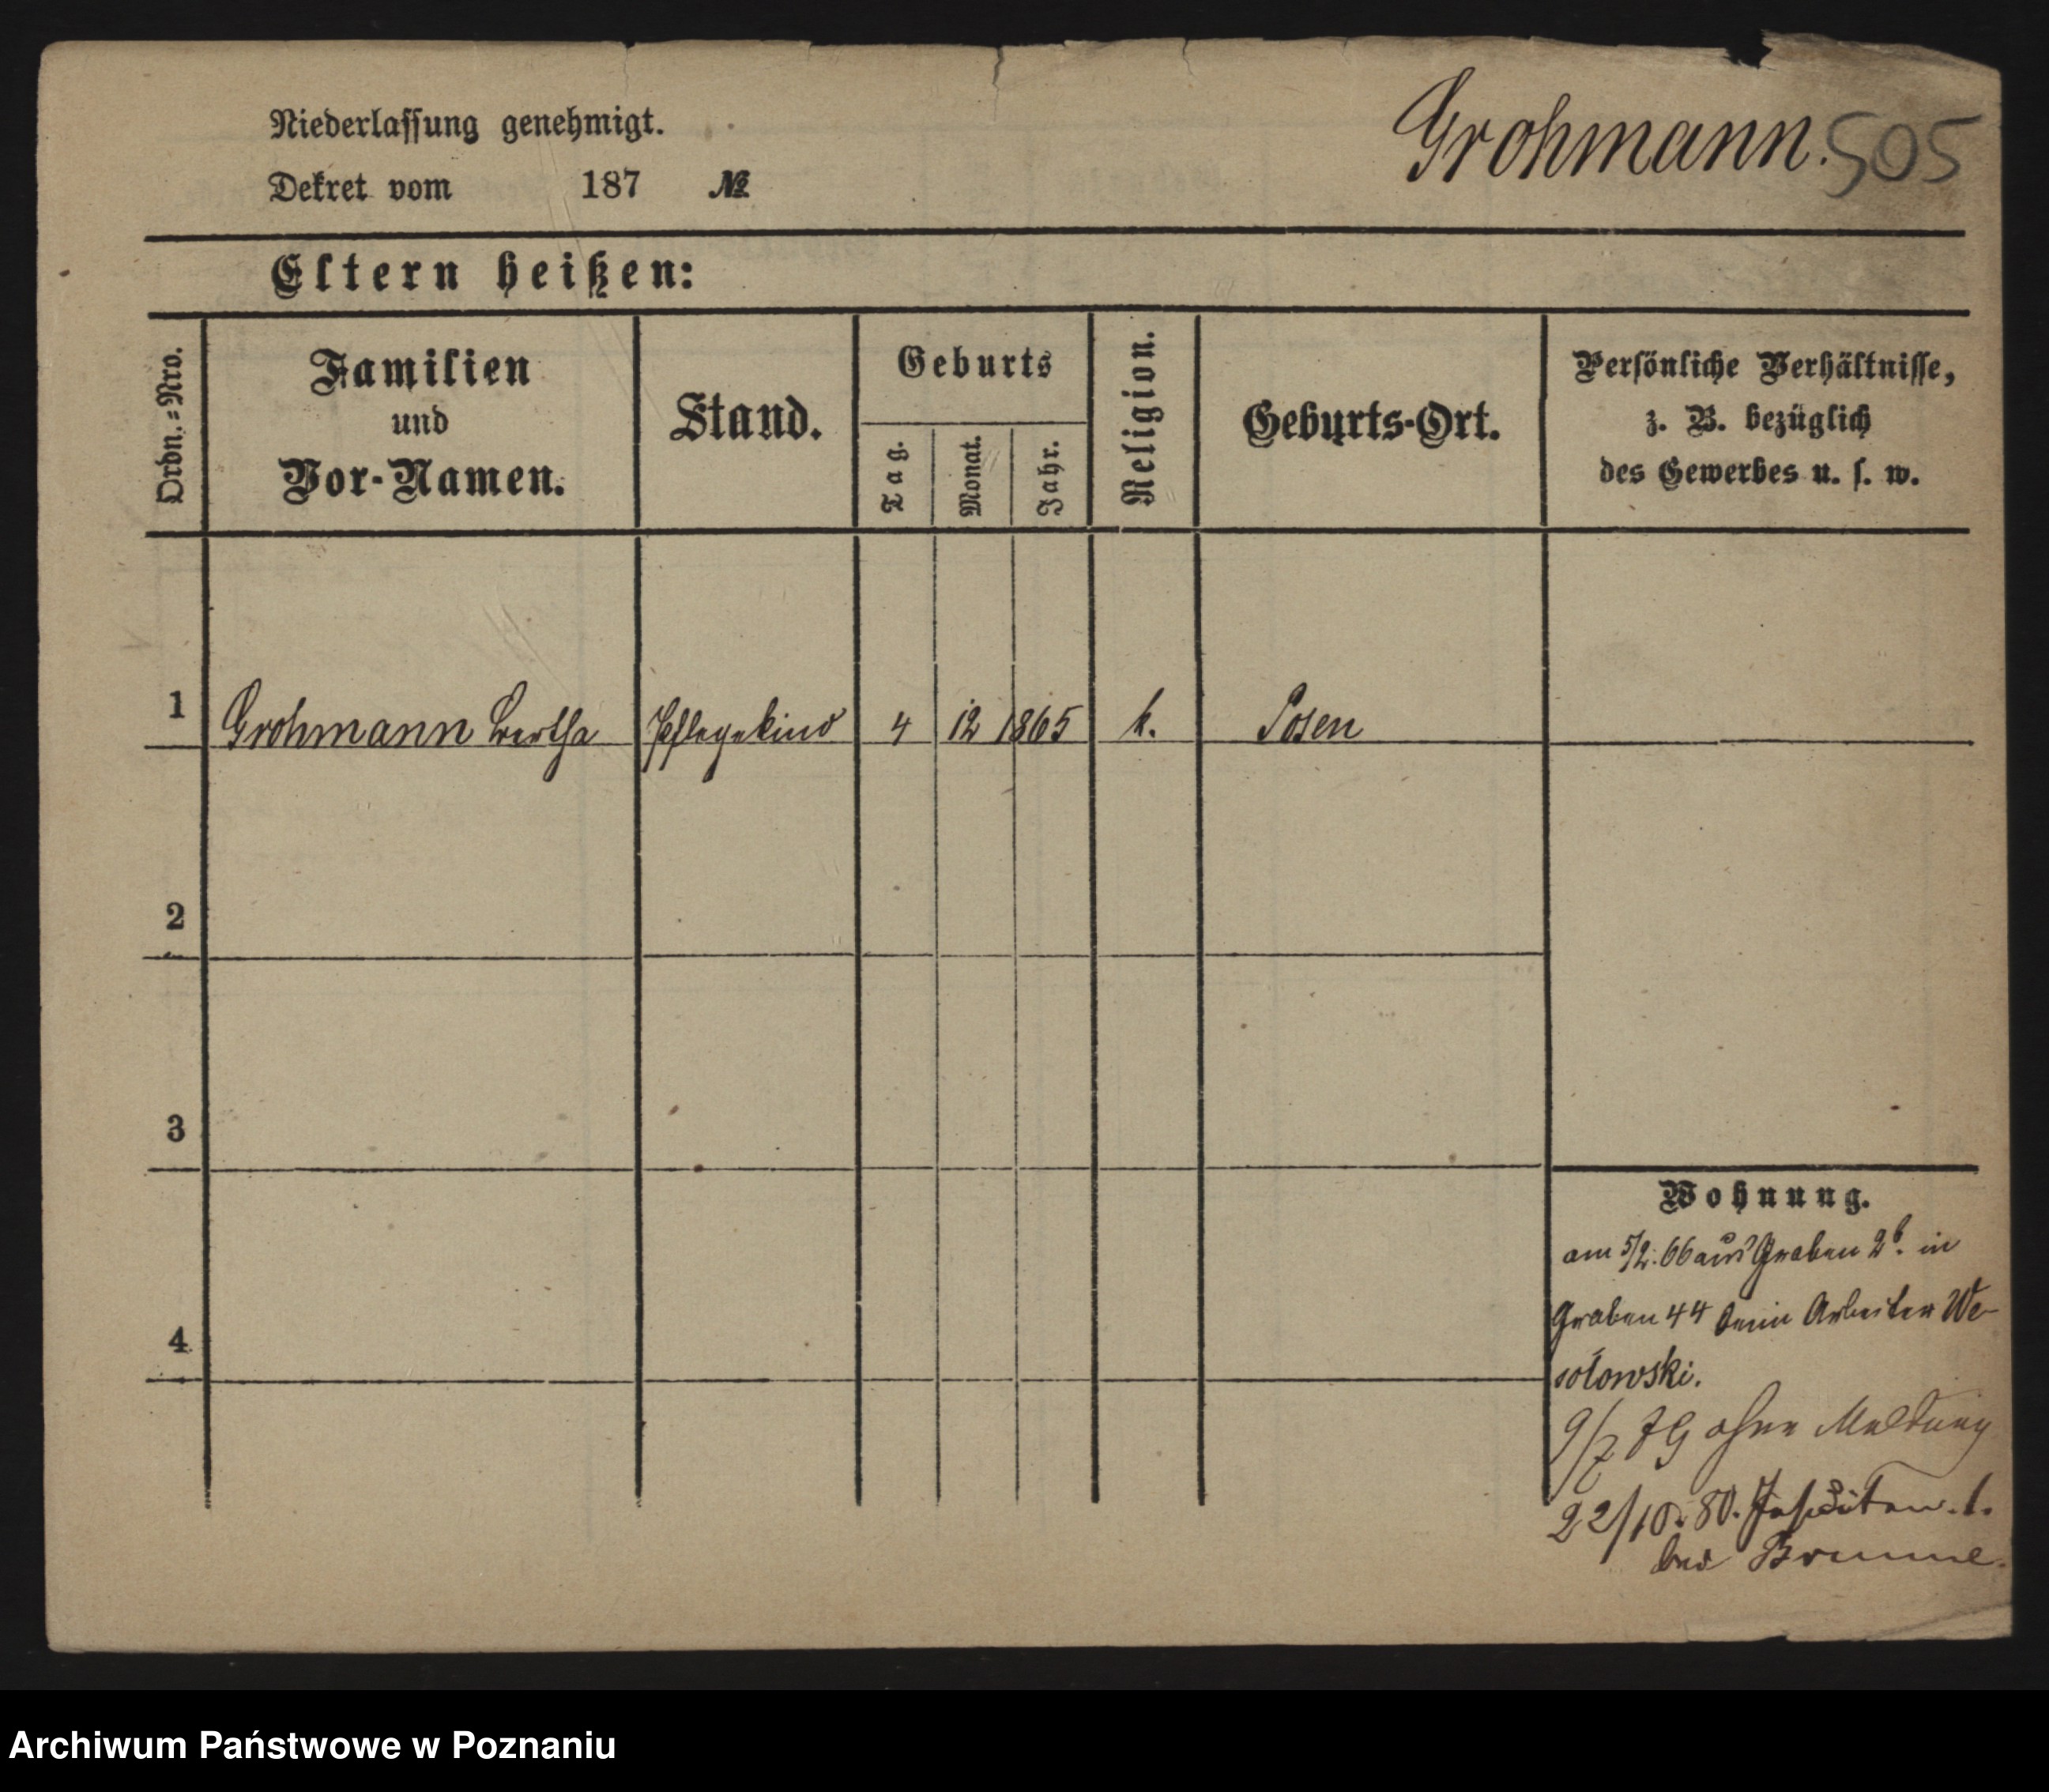 Niederlassung genehmigt.
Dekret vom 187 №
Grohmann. 505
Eltern heißen:
Ordn.=Nro.
Familien
und
Vor-Namen.
Stand.
Geburts
Tag.
Monat.
Jahr.
Religion.
Geburts-Ort.
Persönliche Verhältnisse,
z. B. bezüglich
des Gewerbes u. s. w.
1 Grohmann Bertha Pflegekind 4 12 1865 k. Posen
2
3
4
Wohnung.
am 5/2. 66 aus Graben 2b. in
Graben 44 beim Arbeiter We-
sołowski.
9/7 ohne Meldung
22/10. 80.
bei
Archiwum Państwowe w Poznaniu